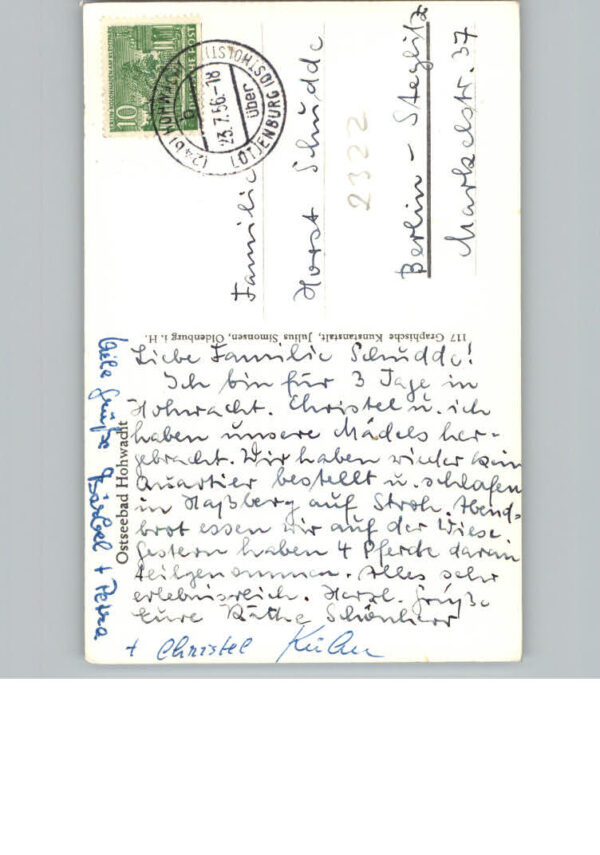 10
(24b) HOHWACHT (OSTHOLST)
über
LÜTJENBURG (OSTHOLST)
23.7.56.-18
Familie
Horst Schudde
2322
Berlin - Steglitz
Markelstr. 37
117 Graphische Kunstanstalt, Julius Simonsen, Oldenburg i. H.
Ostseebad Hohwacht
Liebe Familie Schudde!
Ich bin für 3 Tage in
Hohwacht. Christel u. ich
haben unsere Mädels her-
gebracht. Wir haben wieder kein
Quartier bestellt u. schlafen
in Haßberg auf Stroh. Abend-
brot essen wir auf der Wiese.
Gestern haben 4 Pferde daran
teilgenommen. Alles sehr
erlebnisreich. Herzl. Grüße
Eure Käthe Schönherr
+ Christel
Viele Grüße Bärbel + Petra